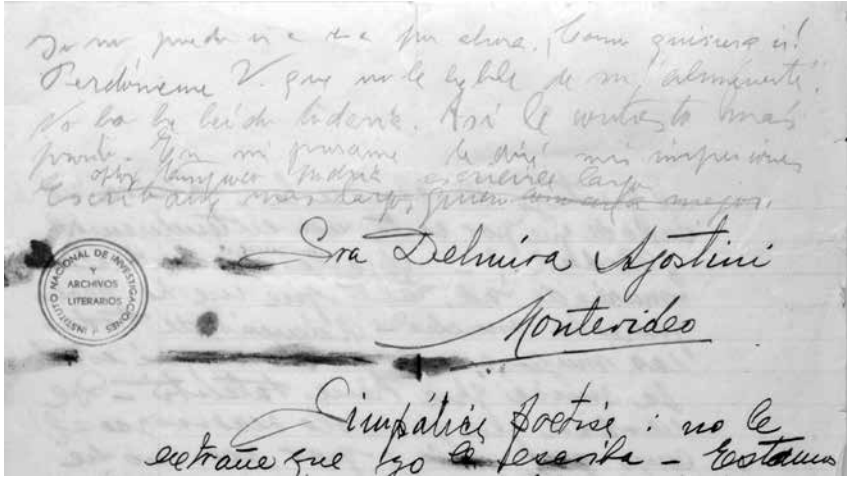 Yo no puedo ir a esa por ahora. ¡Como quisiera ir!
Perdóneme V. que no le hable de su "alma fuerte".
No la he leído todavía. Así le contesto más
pronto. En mi próxima le diré mis impresiones
Hoy tampoco podría escribirle largo
Escríbame más largo, quiero
INSTITUTO NACIONAL DE INVESTIGACIONES Y
Y
ARCHIVOS
LITERARIOS
Sra Delmira Agostini
Montevideo
Simpática poetisa: no le
extrañe que yo le escriba – Estamos